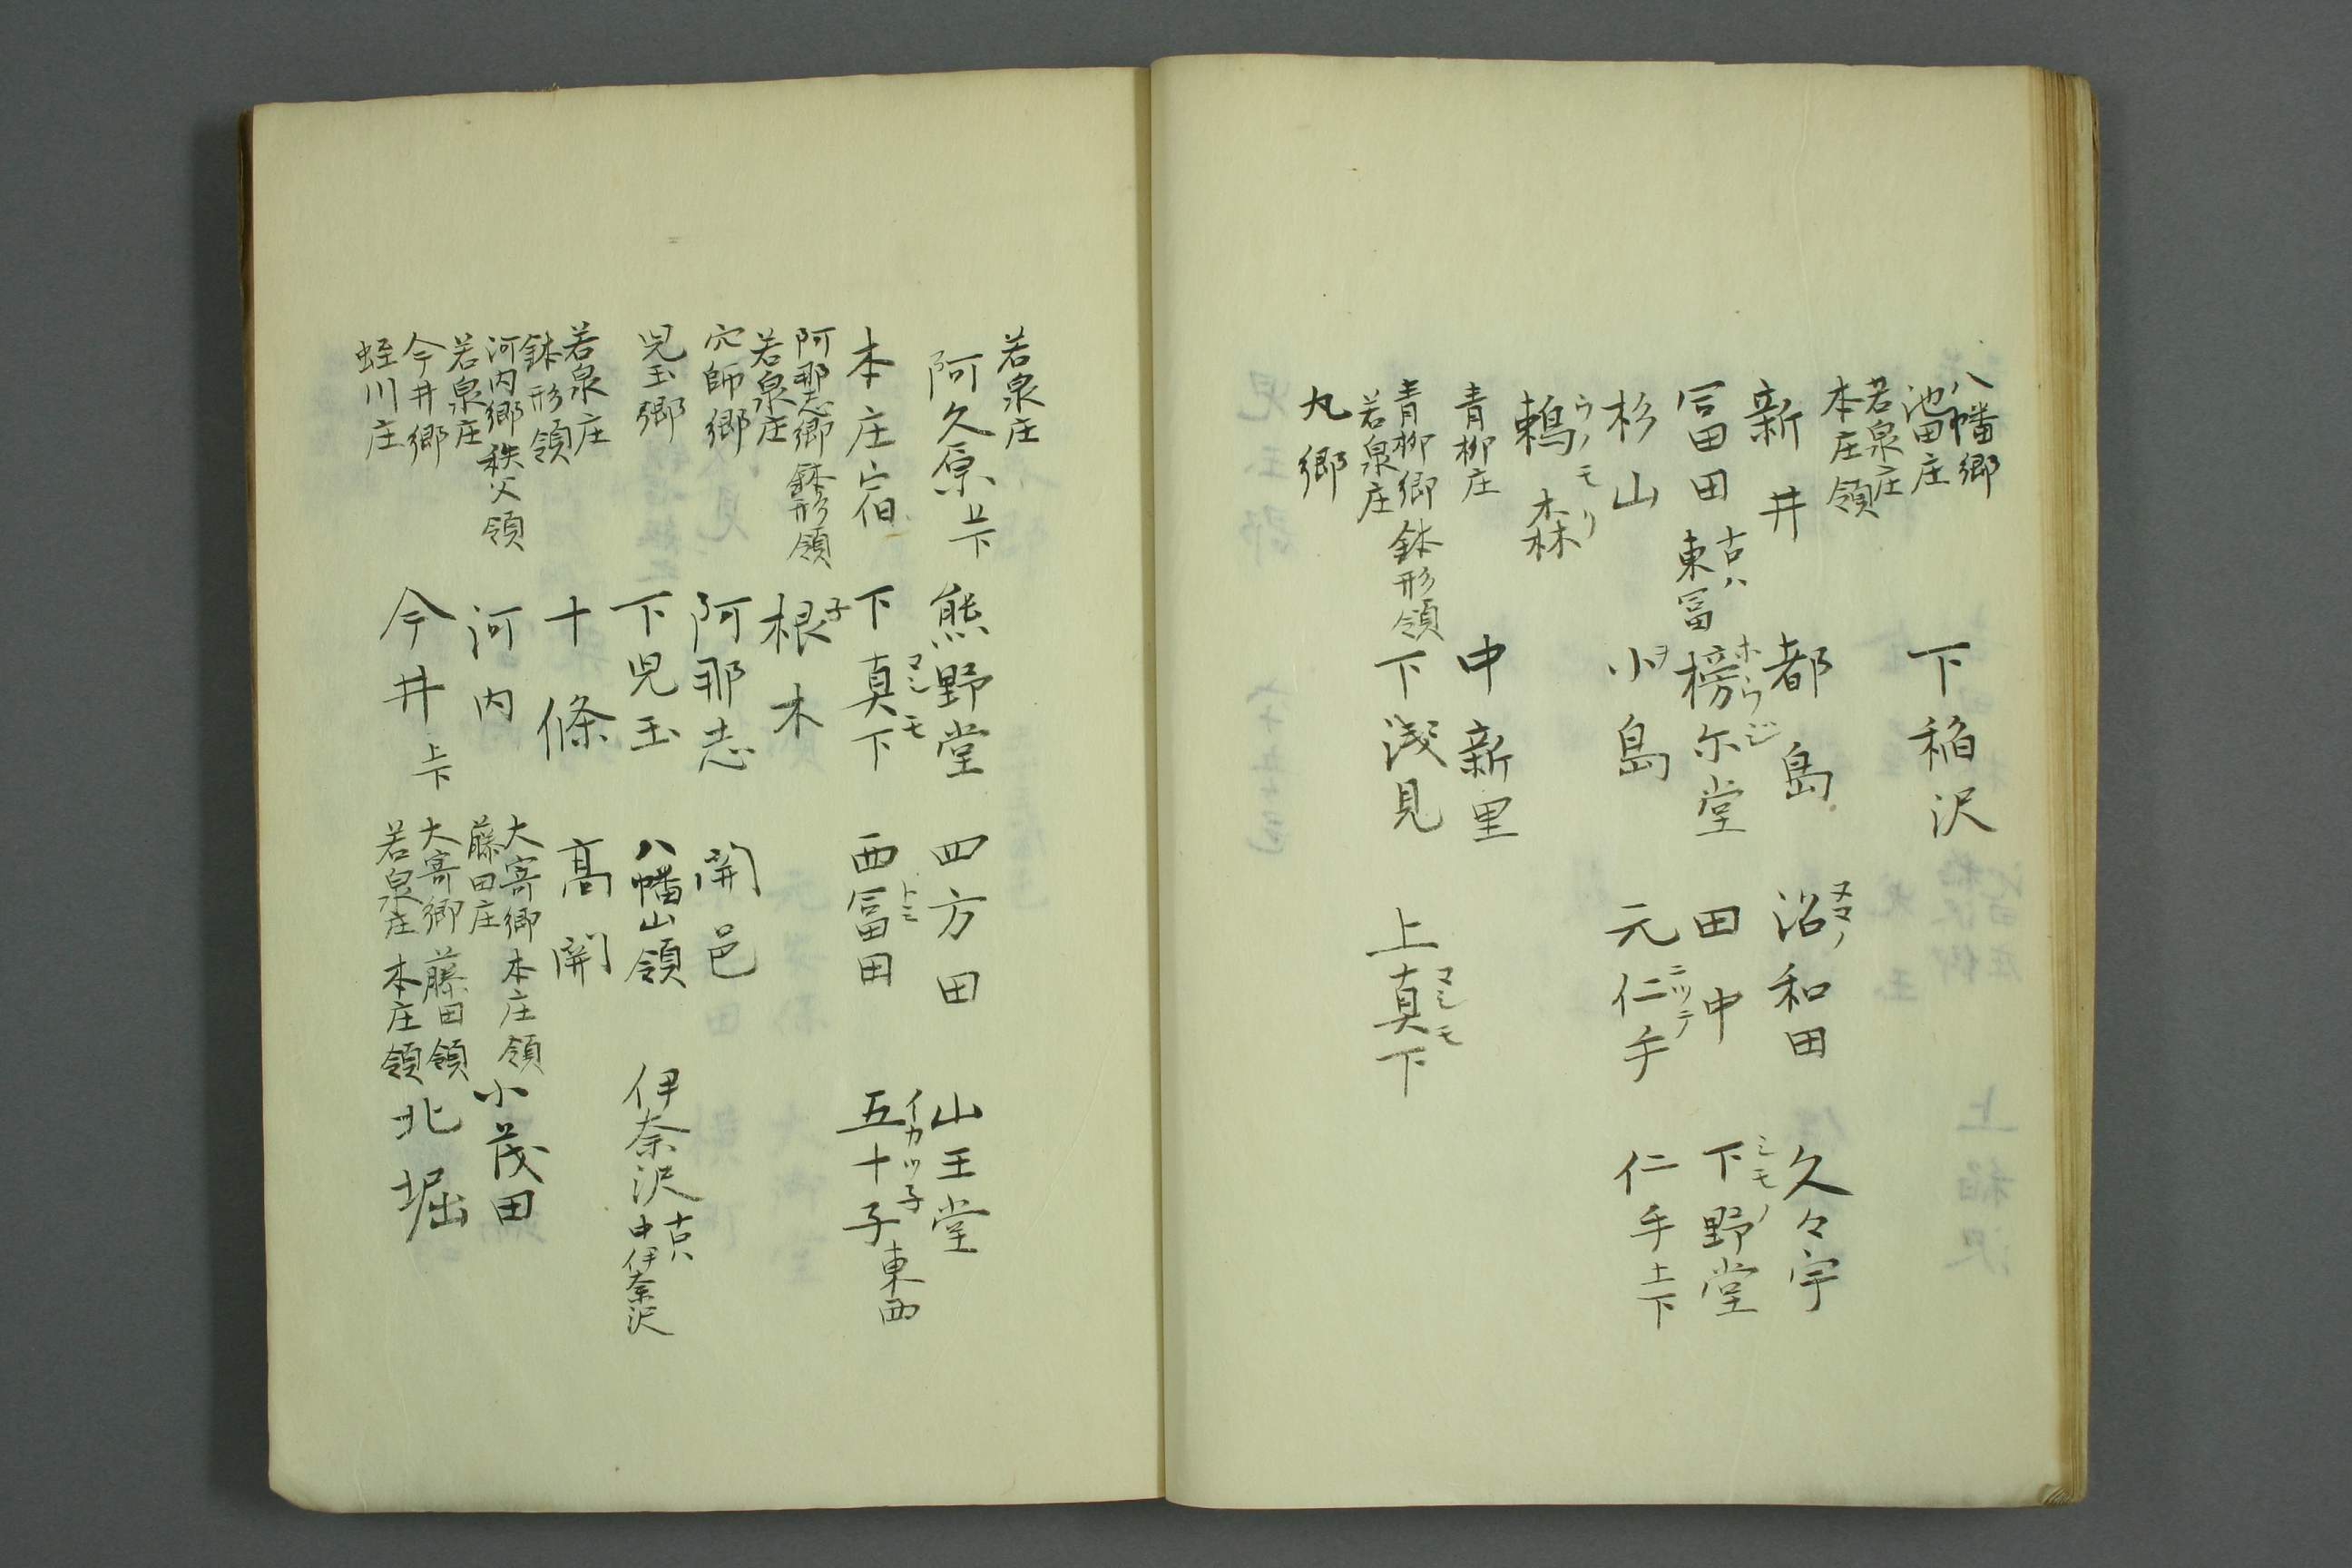 八幡郷
池田庄　下稲沢
若泉庄
本庄領
新井　都島　沼和田　久々宇
ヌマノ
冨田　古ハ東冨　榜尓堂　田中　下野堂
ホウジ　シモノ
杉山　小島　元仁手　仁手上下
ヲ　ニツテ
鵜森
ウノモリ
青柳庄　中新里
青柳郷　鉢形領　下浅見　上真下
マシモ
若泉庄
丸郷
若泉庄
阿久原上下　熊野堂　四方田　山王堂
本庄宿　下真下　西冨田　五十子東西
マシモ　トミ　イカツ子
阿那志郷　鉢形領　根木
子
若泉庄
穴師郷　阿那志　関邑
児玉郷　下児玉　八幡山領　伊奈沢　古ハ中伊奈沢
若泉庄　十條　高関
鉢形領
河内郷　秩父領　河内　大寄郷　本庄領　小茂田
若泉庄　藤田庄
今井郷　今井上下　大寄郷　藤田領　北堀
蛭川庄　若泉庄　本庄領